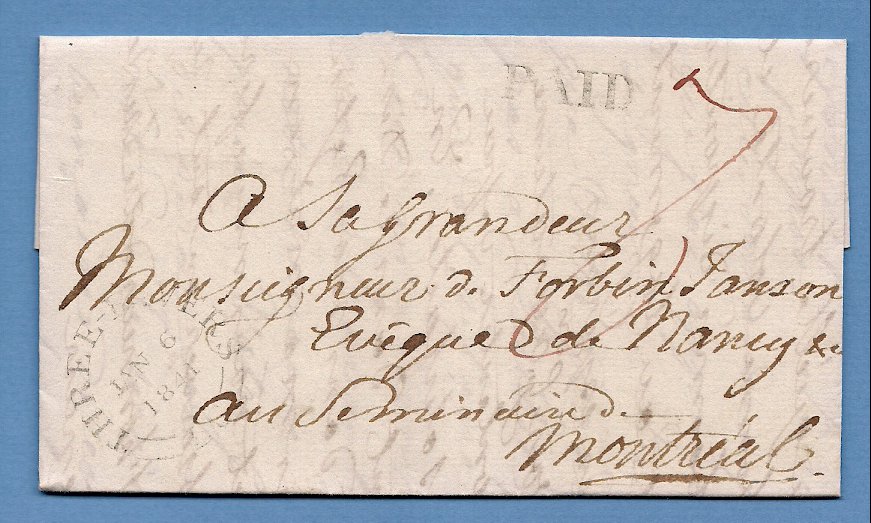 PAID
A Sa grandeur
Monseigneur de Forbin Janson
Evêque de Nancy &c
au Seminaire de
Montréal.
THREE-RIVERS
1841